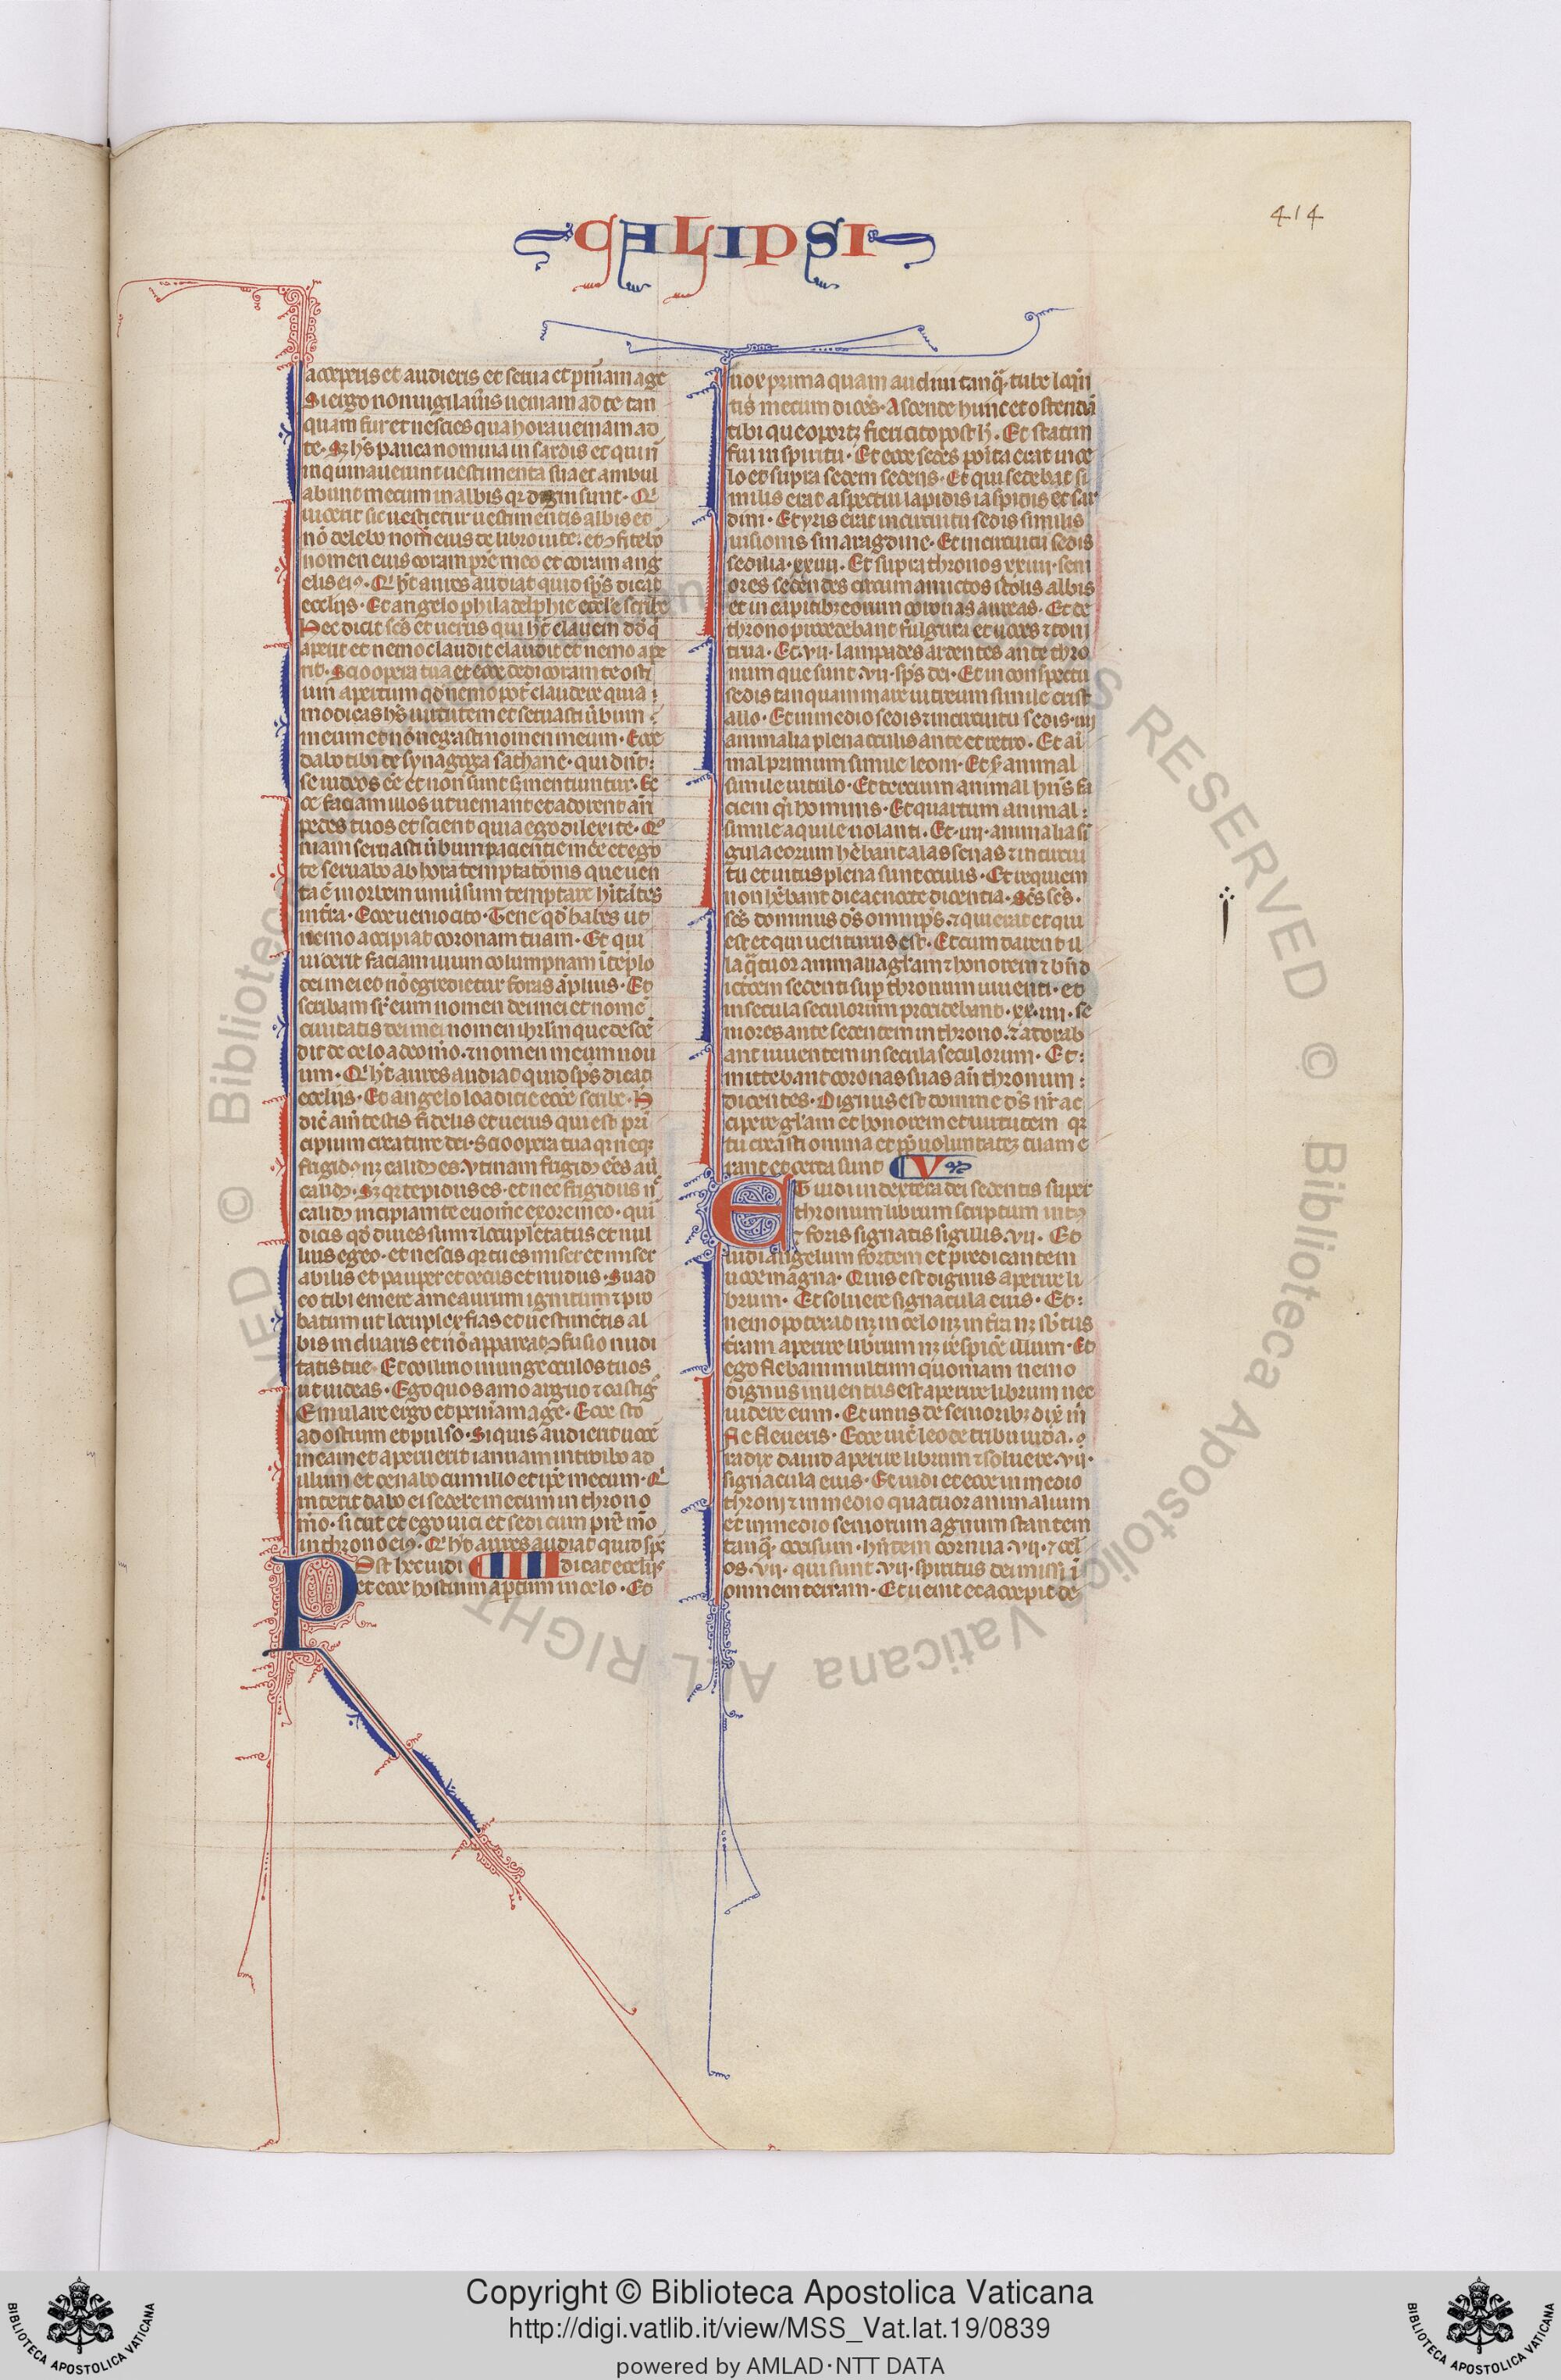 CALIPSI
414
acceperis et audieris et serua et pniam age
Si ergo non uigilaueris ueniam ad te tan
quam fur et nescies qua hora ueniam ad
te. Sz hes pauca nomina in sardis et qui ñ
inquinauerunt uestimenta sua et ambul
abunt mecum in albis qr digni sunt. Qi
uicerit sic uestietur uestimentis albis et
nō delebo nom̄ eius de libro uite. et 9fitebor
nomen eius coram pre meo et coram ang
elis ei9. Qi ht aures audiat quid sps dicat
ecclijs. Et angelo philadelphie eccle scribe
Hec dicit scs et uerus qui ht clauem dd q
aperit et nemo claudit claudit et nemo ape
rit. Scio opera tua et ecce dedi coram te osti
um apertum qd nemo pot claudere quia
modicas hs uirtutem et seruasti ubum
meum et non negasti nomen meum. Ecce
dabo tibi de synagoga sathane. qui dnt
se iudeos ee et non sunt sz mentiuntur. Ec
ce faciam illos ut ueniant et adorent an
pedes tuos et scient quia ego dilexi te. Qo
niam seruasti ubum paciencie mee et ego
te seruabo ab hora temptatonis que uen
ta ē in orbem uniusum temptare hitātes
in tra. Ecce uenio cito. Tene qd habes ut
nemo accipiat coronam tuam. Et qui
uicerit faciam illum columpnam ī teplo
dei mei et nō egredietur foras āplius. Et
scribam sr eum nomen dei mei et nomē
ciuitatis dei mei nomen ihrlm que descē
dit de celo a deo mō. 7 nomen meum nou
um. Qi ht aures audiat quid sps dicat
ecclijs. Et angelo loadicie eccē scribe. H
dic amē testis fidelis et uerus qui est pri
cipium creature dei. Scio opera tua qr neqz
frigid9 nz calid9 es. Utinam frigid9 ees aū
calid9. Sz qr tepidus es. et nec frigidus n
calid9 incipiam te euomē ex ore meo. qui
dicis qd diues sum 7 locupletatus et nul
lius egeo. et nescis qr tu es miser et miser
abilis et pauper et cecus et nudus. Suad
eo tibi emere a me aurum ignitum 7 pro
batum ut locuplex fias et uestimētis al
bis induaris et nō appareat 9fusio nudi
tatis tue. Et collirio inunge occulos tuos
ut uideas. Ego quos amo arguo 7 castigo
Emulare ergo et peniam age. Ecce sto
ad ostium et pulso. Si quis audierit uocē
meam et aperuerit ianuam intrabo ad
illum et cenabo cum illo et ipe mecum. Qi
uicerit dabo ei sedere mecum in throno
mō. sicut et ego uici et sedi cum pre mō
in throno ei9. Qi ht aures audiat quid sps
Post hec uidi IIII dicat ecclijs
et ecce hostium aptum in celo. Et
uox prima quam audiui tanq tube loqn
tis mecum dices. Ascende hunc et ostendā
tibi que oportz fieri cito post h. Et statim
fui in spiritu. Et ecce sedes posita erat in ce
lo et supra sedem sedens. Et qui sedebat si
milis erat aspectui lapidis iaspidis et sar
dini. Et yris erat in circuitu sedis similis
uisionis smaragdine. Et in circuitu sedis
sedilia xxiiii. Et supra thronos xxiiii. seni
ores sedentes circum amictos stolis albis
et in capitibz eorum coronas aureas. Et de
throno procedebant fulgura et uoces 7 toni
trua. Et vii. lampades ardentes ante thro
num que sunt vii. sps dei. Et in conspectu
sedis tanquam mare uitreum simile crist
allo. Et in medio sedis 7 in circuitu sedis iiii
animalia plena occulis ante et retro. Et ai
mal primum simile leoni. Et s animal
simile uitulo. Et tercium animal hns fa
ciem qi hominis. Et quartum animal
simile aquile uolanti. Et iiii. animalia si
gula eorum hebant alas senas 7 in circui
tu et intus plena sunt occulis. Et requiem
non hebant die ac nocte dicentia. Scs scs.
scs dominus ds omnips. 7 qui erat et qui
est et qui uenturus est. Et cum darent il
la qtuor animalia glam 7 honorem 7 bnd
ictōem sedenti sup thronum uiuenti. et
in secula seculorum procidebant. xx.iiii. se
niores ante sedentem in throno. 7 adorab
ant uiuentem in secula seculorum. Et
mittebant coronas suas an thronum
dicentes. Dignus est domine ds nr ac
cipere glam et honorem et uirtutem qr
tu creasti omnia et pp uoluntatez tuam e
rant et creata sunt V
Et uidi in dextera dei sedentis super
thronum librum scriptum int9
7 foris signatis sigillis. vii. Et
uidi angelum fortem et predicantem
uoce magna. Quis est dignus aperire li
brum. Et soluere signacula eius. Et
nemo poterat nz in celo nz in tra nz sbtus
tram aperire librum nz respice illum. Et
ego flebam multum quoniam nemo
dignus inuentus est aperire librum nec
uidere eum. Et unus de senioribz dix m
Ne fleueris. Ecce uic leo de tribu iuda.
radix dauid aperire librum 7 soluere. vii.
signacula eius. Et uidi et ecce in medio
throni 7 in medio quatuor animalium
et in medio seniorum agnum stantem
tanq occisum. hntem cornua vii. 7 ocl
os. vii. qui sunt. vii. spiritus dei missi ī
omnem terram. Et uenit et accepit de
Copyright © Biblioteca Apostolica Vaticana
http://digi.vatlib.it/view/MSS_Vat.lat.19/0839
powered by AMLAD·NTT DATA
BIBLIOTECA APOSTOLICA VATICANA
BIBLIOTECA APOSTOLICA VATICANA